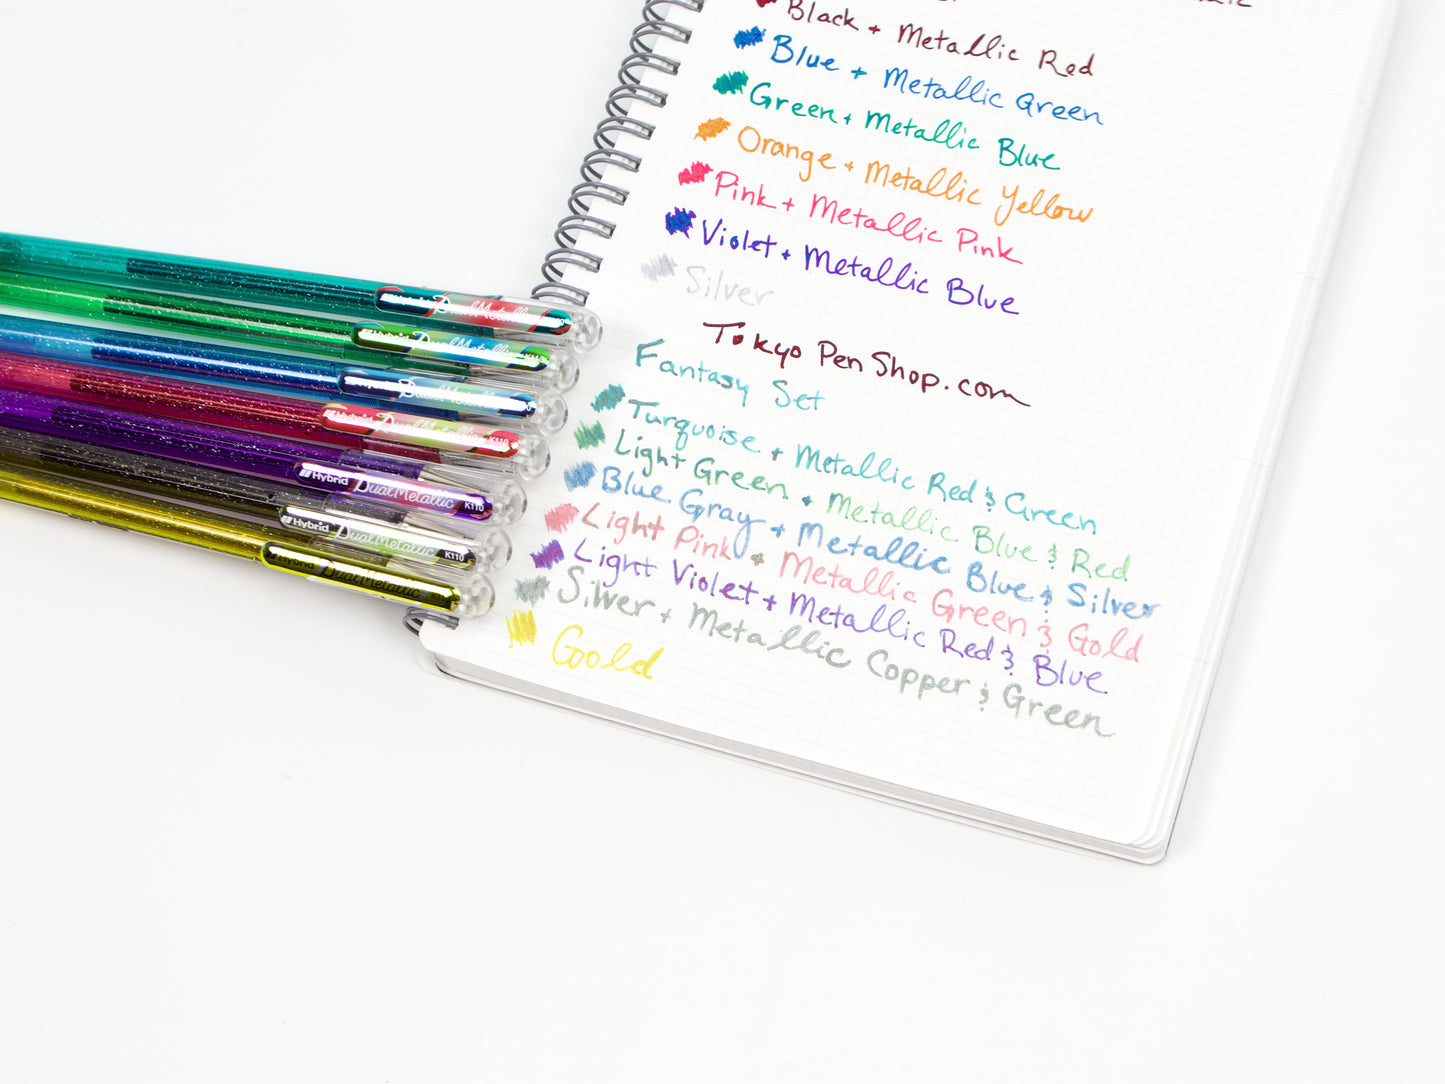 Black + Metallic Red
Blue + Metallic Green
Green + Metallic Blue
Orange + Metallic Yellow
Pink + Metallic Pink
Violet + Metallic Blue
Silver
Tokyo Pen Shop.com
Fantasy Set
Turquoise + Metallic Red & Green
Light Green + Metallic Blue & Red
Blue Gray + Metallic Blue & Silver
Light Pink + Metallic Green & Gold
Light Violet + Metallic Red & Blue
Silver + Metallic Copper & Green
Gold
Hybrid DualMetallic
Hybrid DualMetallic K110
Hybrid DualMetallic
Hybrid DualMetallic K110
Hybrid DualMetallic K110
Hybrid DualMetallic K110
Hybrid DualMetallic